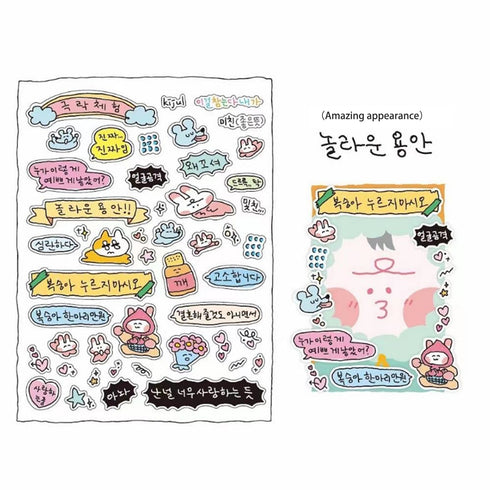 극락체험
kijul
이걸참는다내가
미친(좋은뜻)
진짜..
진짜임
왜꼬셔
누가이렇게
예쁘게낳았어?
얼굴공격
드르륵 탁
놀라운 용안!!
미친
심란하다
복숭아 누르지마시오
깨
고소합니다
복숭아 한마리만원
결혼해줄것도 아니면서
사랑하는 나의
난널 너무 사랑하는 듯
(Amazing appearance)
놀라운 용안
복숭아 누르지마시오
얼굴공격
누가이렇게
예쁘게낳았어?
복숭아 한마리만원